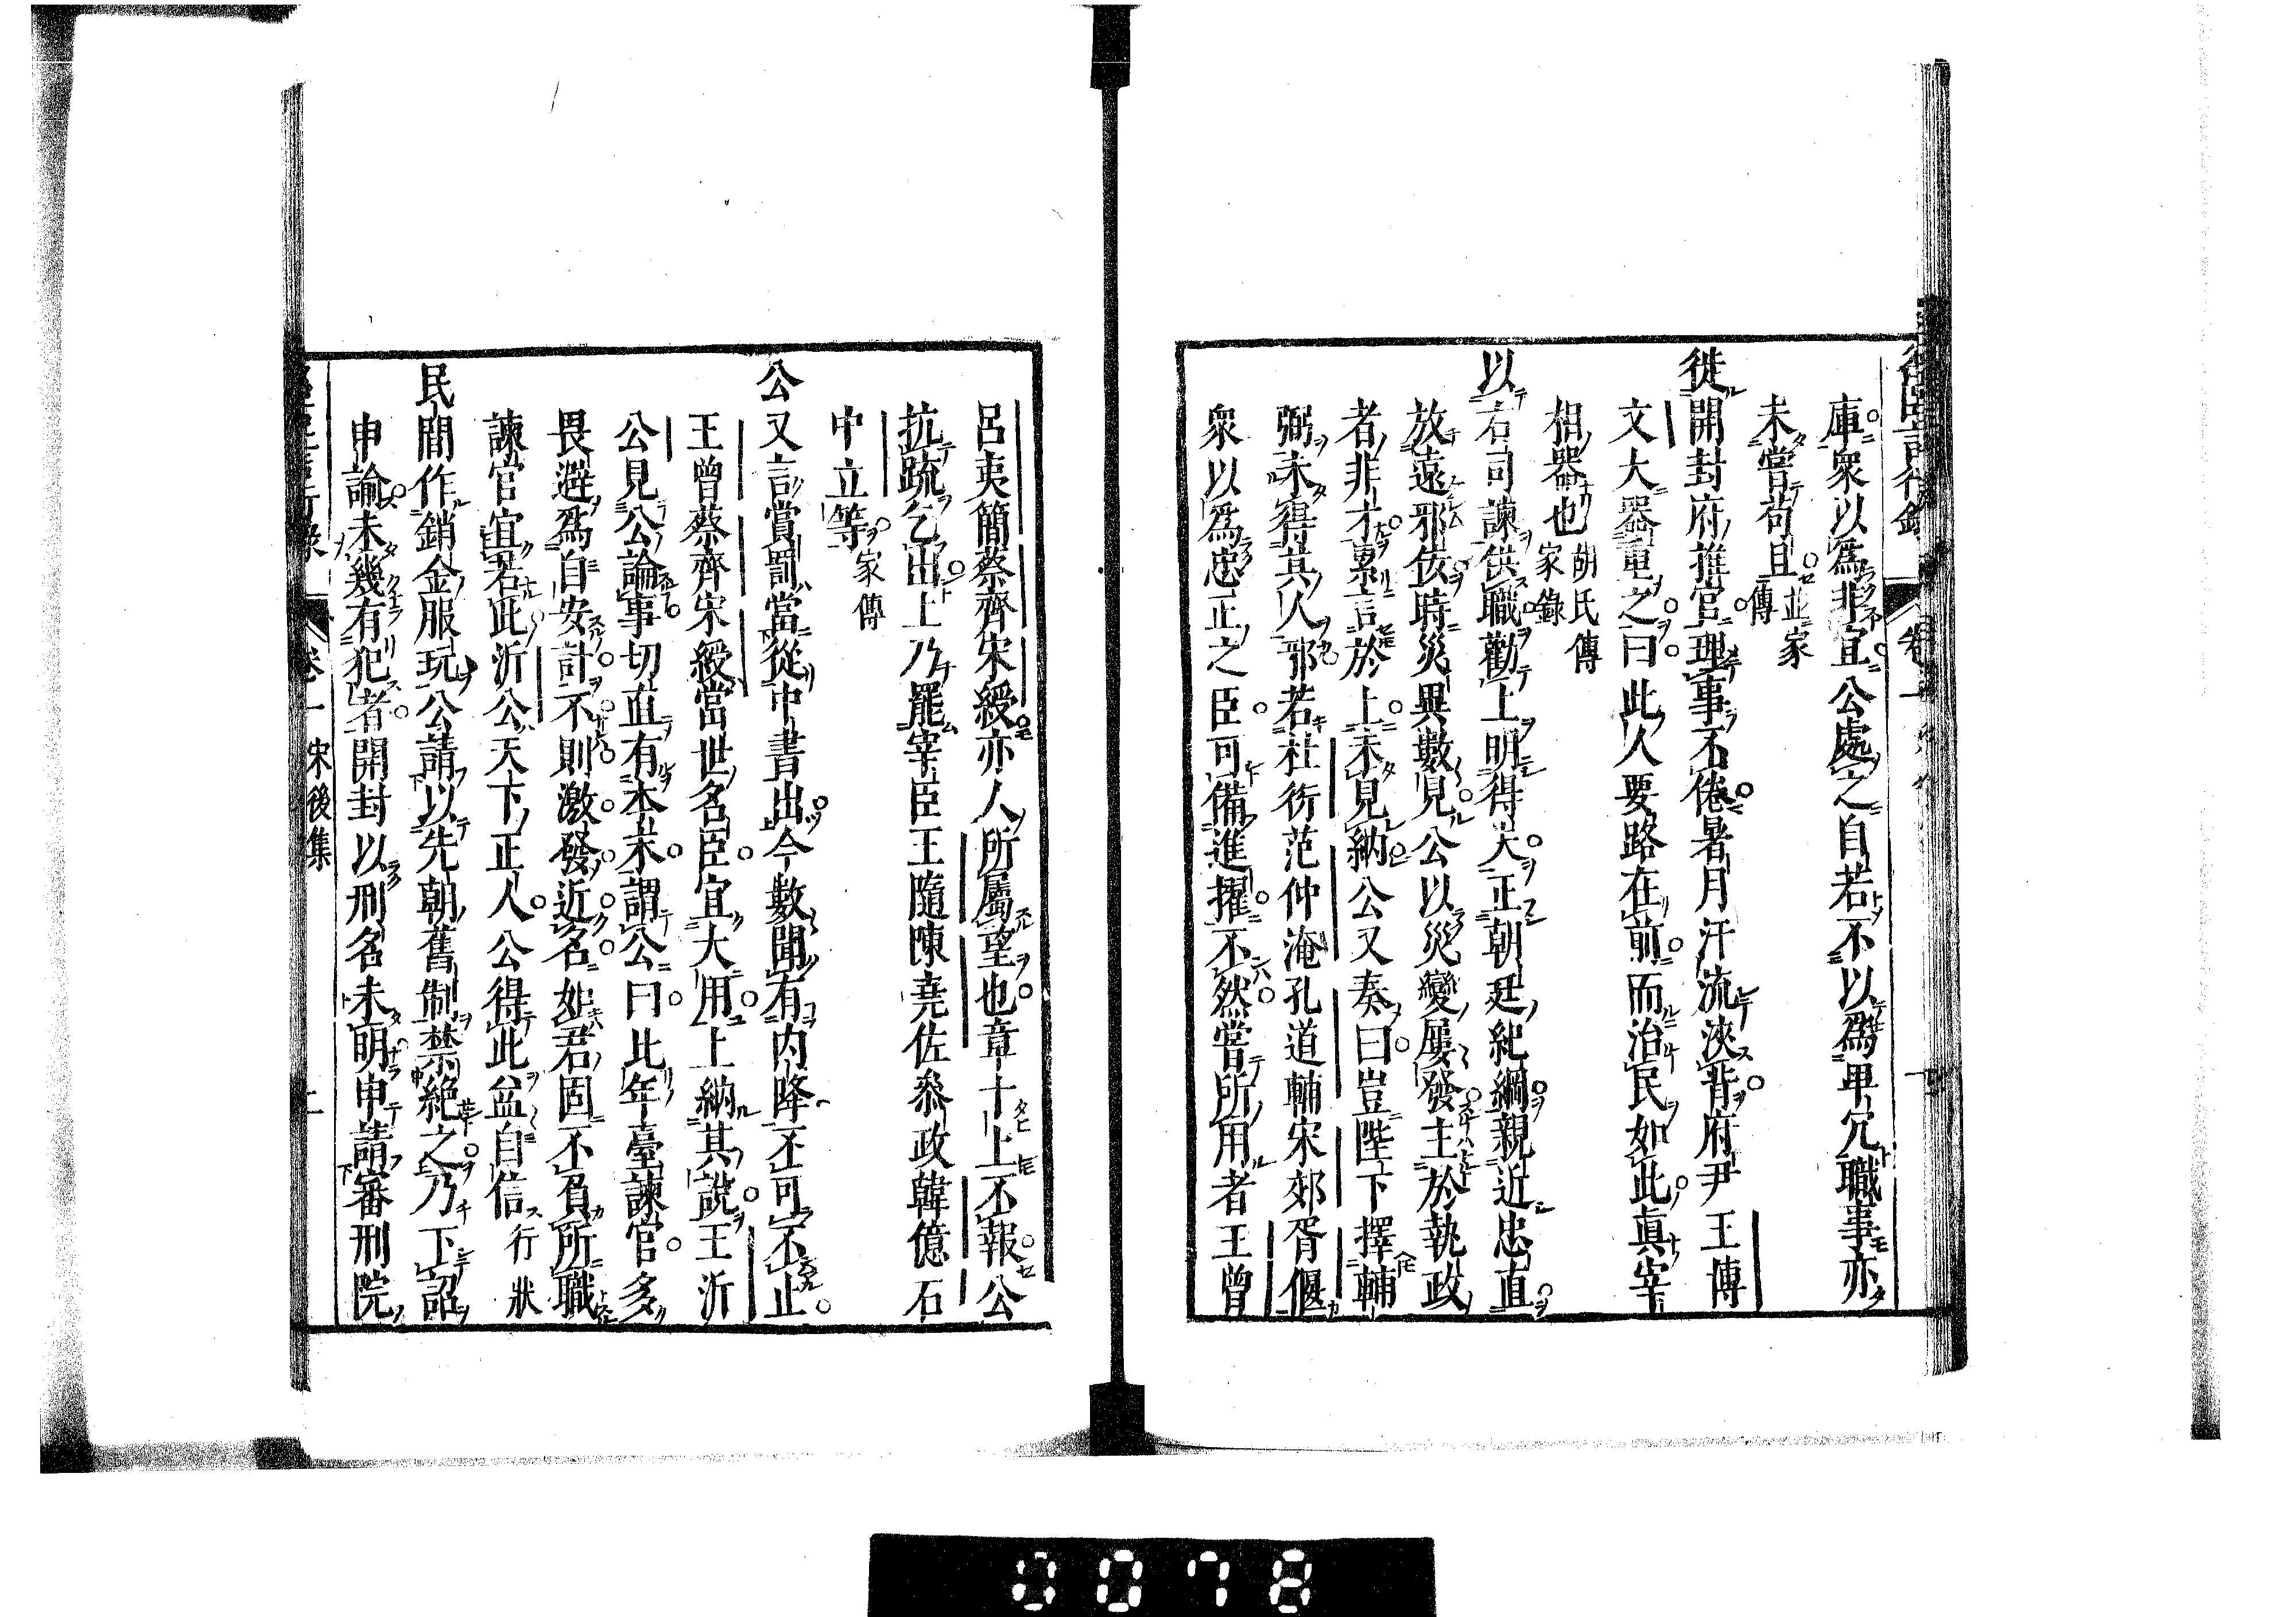 庫衆以爲非宜公處之自若不以爲卑冗職事亦
未嘗苟且並家傳
徙開封府推官理事不倦暑月汗流浹背府尹王傳
文大器重之曰此人要路在前而治民如此眞宰
相器也胡氏傳家錄
以右司諫供職勸上明得失正朝廷紀綱親近忠直
放遠邪佞時災異數見公以災變屢發主於執政
者非才累言於上未見納公又奏曰豈陛下擇輔
弼未得其人邪若杜衍范仲淹孔道輔宋郊胥偃
衆以爲忠正之臣可備進擢不然嘗所用者王曾
呂夷簡蔡齊宋綬亦人所屬望也章十上不報公
抗疏乞出上乃罷宰臣王隨陳堯佐叅政韓億石
中立等家傳
公又言賞罰當從中書出今數聞有内降不可不止
王曾蔡齊宋綬當世名臣宜大用上納其說王沂
公見公論事切直有本末謂公曰比年臺諫官多
畏避爲自安計不則激發近名如君固不負所職
諫官宜若此沂公天下正人公得此益自信行狀
民間作銷金服玩公請以先朝舊制禁絕之乃下詔
申諭未幾有犯者開封以刑名未明申請審刑院
卷一 宋後集
0078